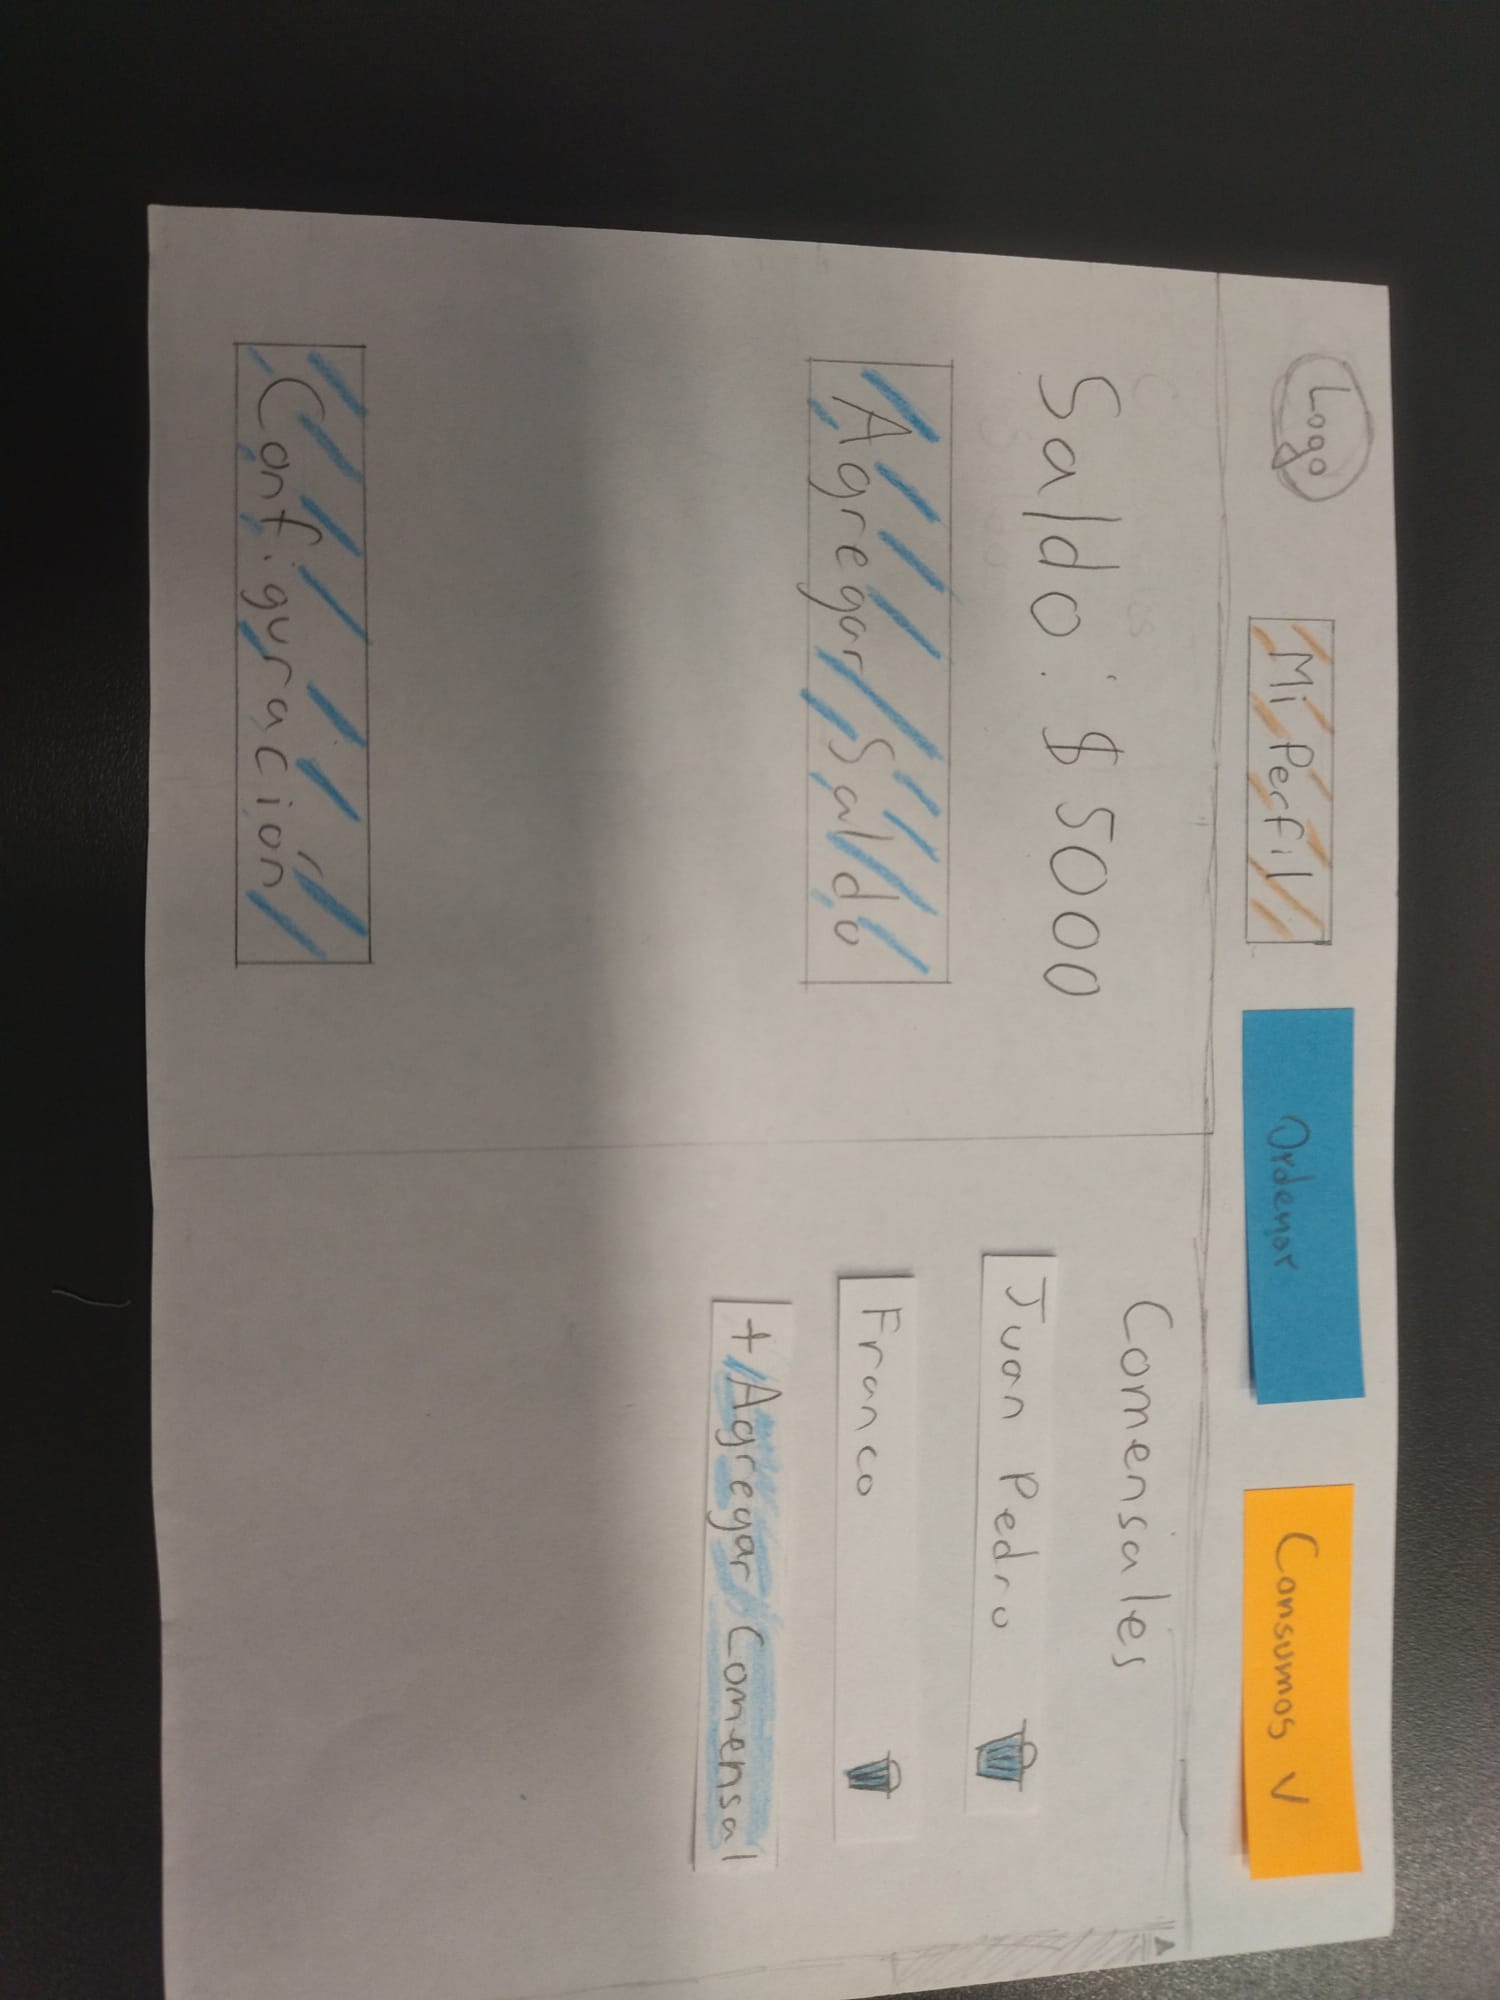 Logo
Mi Perfil
Ordenar
Consumos V
Saldo: $5000
Agregar Saldo
Configuración
Comensales
Juan Pedro
Franco
+ Agregar Comensal